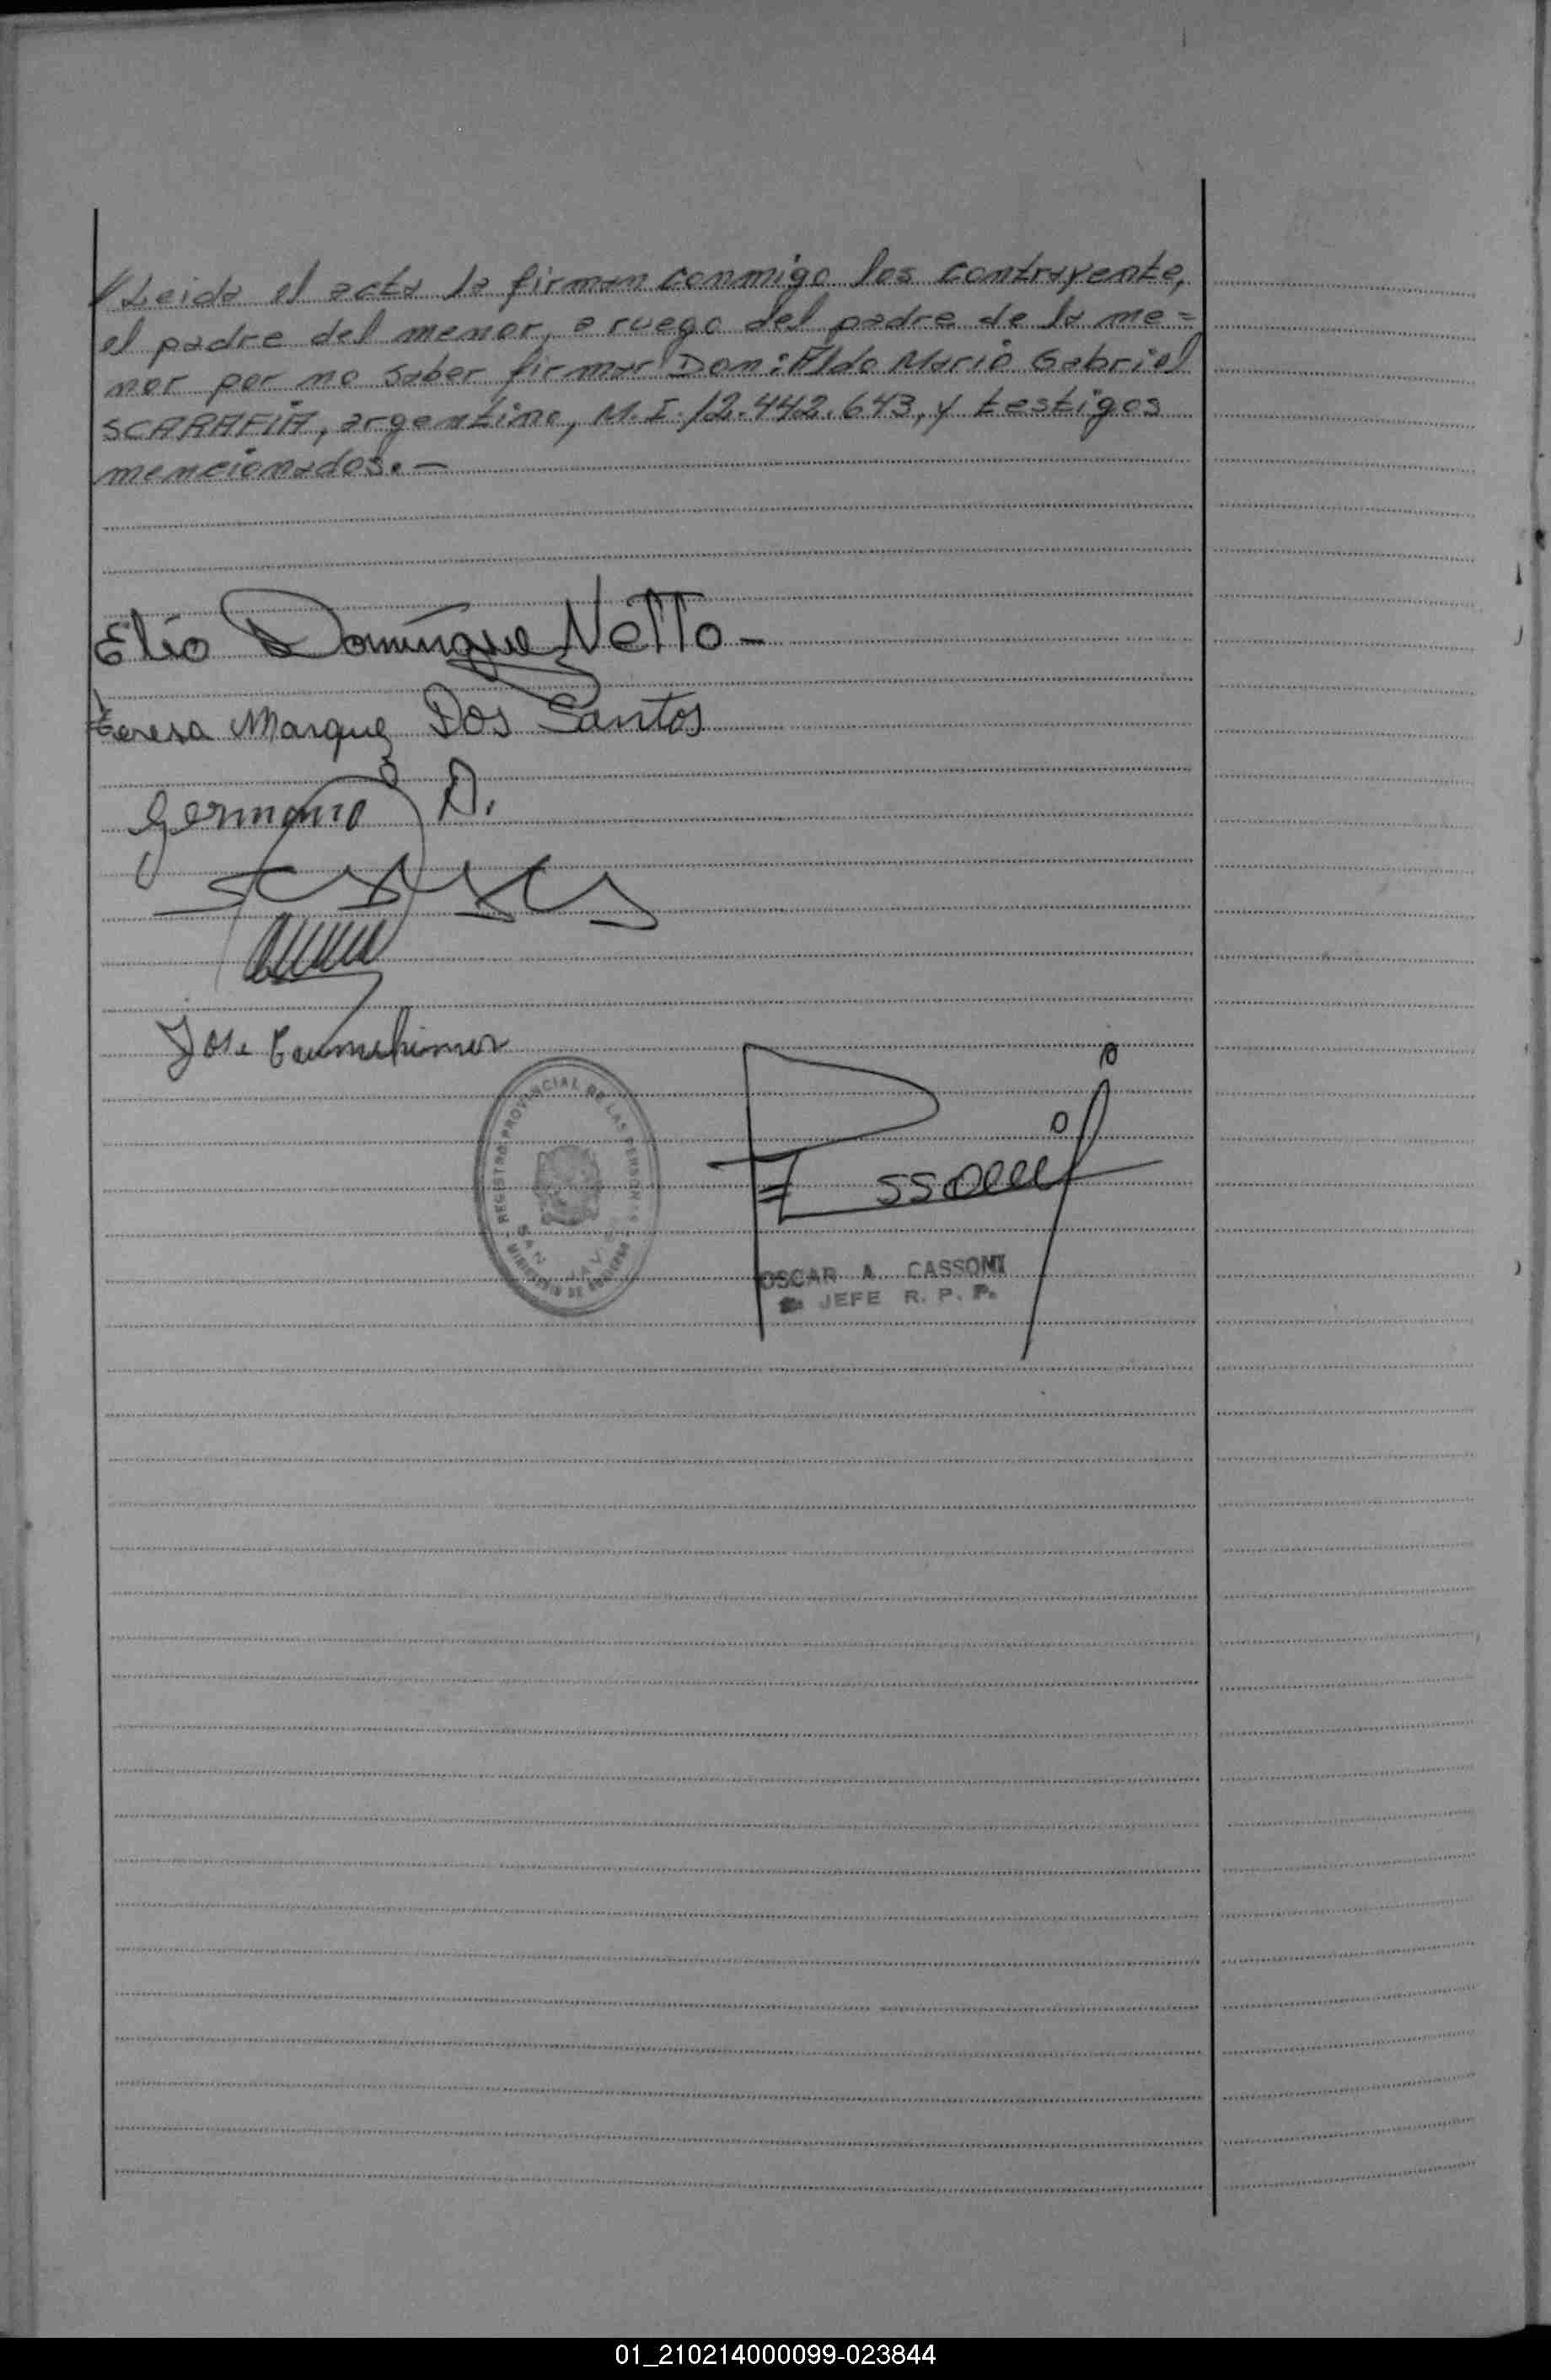 //Leida el acta la firman conmigo los contrayente,
el padre del menor, a ruego del padre de la me=
nor por no saber firmar Don: Aldo Mario Gabriel
SCARAFIA, argentino, M.I. 12.442.643, y testigos
mencionados.-
Elio Domingue Netto-
teresa Marquez Dos Santos
germano D.
Jose
REGISTRO PROVINCIAL DE LAS PERSONAS
SAN JAVIER
MINISTERIO DE GOBIERNO
OSCAR A. CASSONI
JEFE R. P. P.
01_210214000099-023844